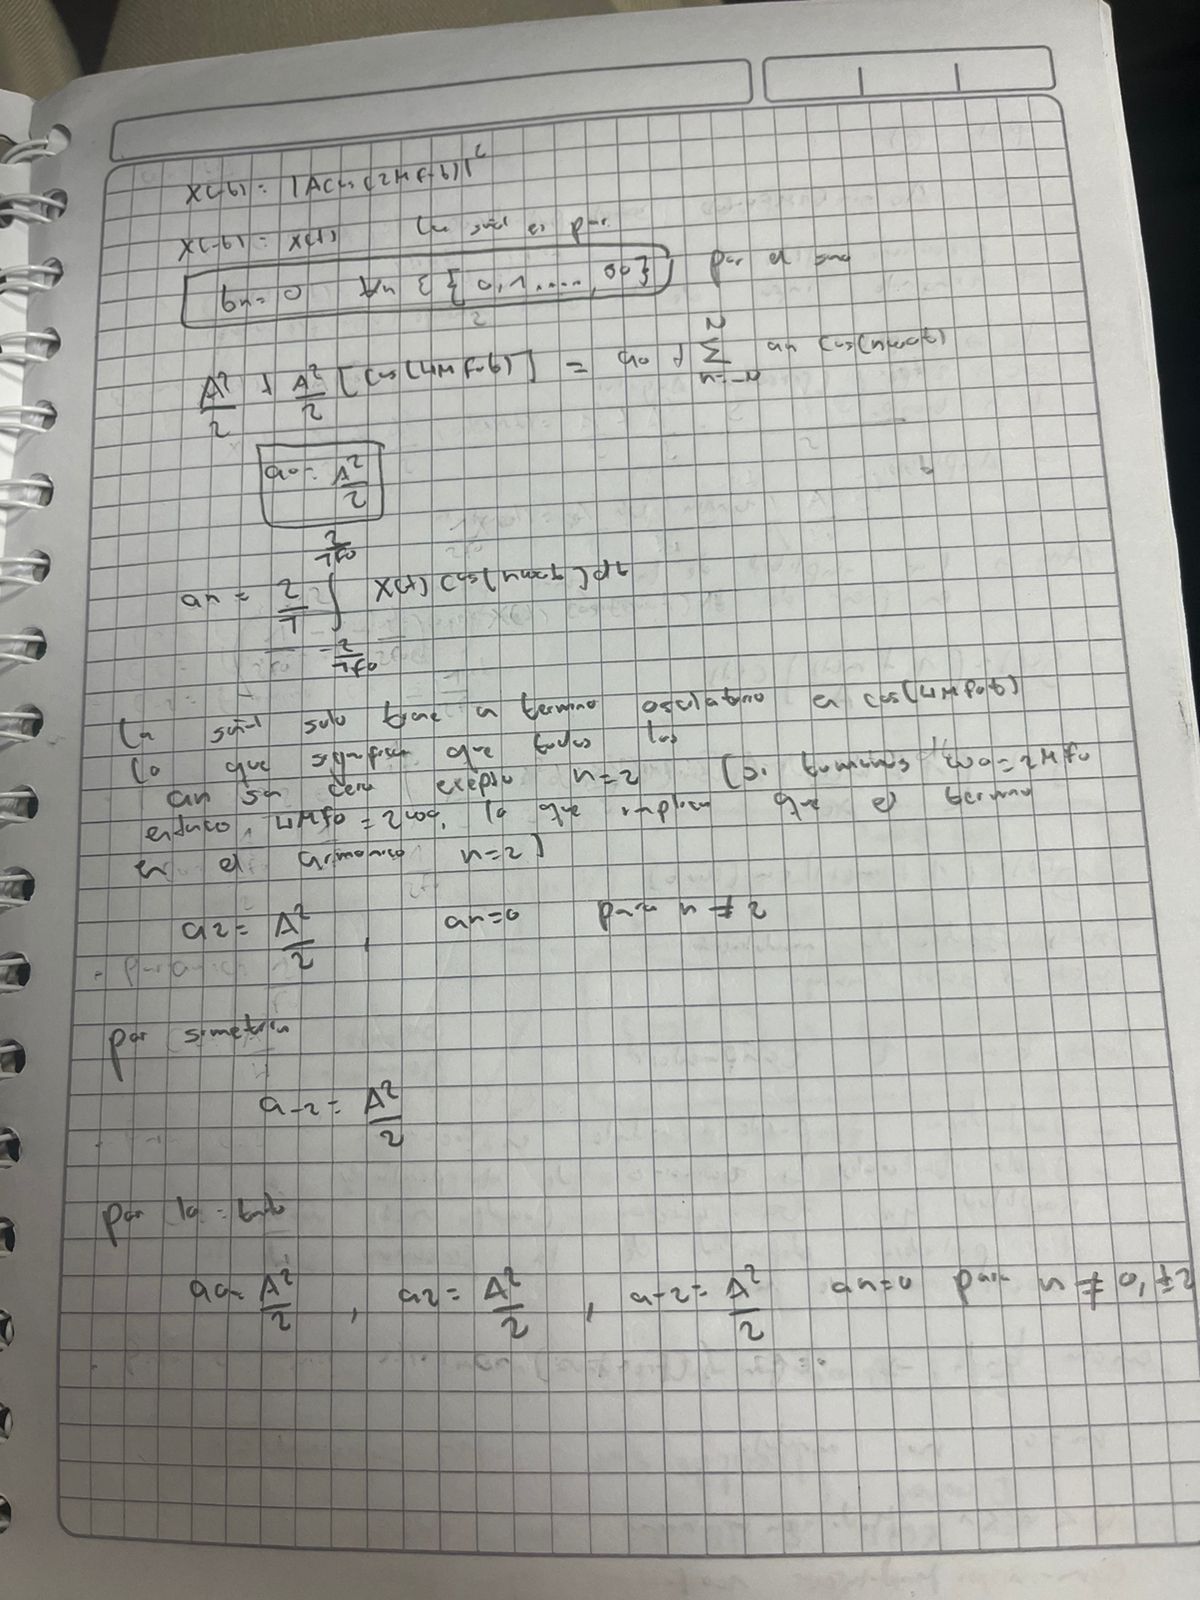 x(-t) = |A cos(2πf-t)|²
x(-t) = x(t) la señal es par
bn = 0 ∀n ∈ {0,1,....,∞} por el seno
A²/2 + A²/2 [cos(4πf0t)] = a0 + Σ an cos(nω0t)
a0 = A²/2
an = 2/T ∫ x(t) cos(nω0t) dt
la señal solo tiene un termino oscilatorio en cos(4πf0t)
lo que significa que todos los
an son cero excepto n=2 (si tomamos ω0=2πf0
entonces 4πf0 = 2ω0, lo que implica que el termino
en el armonico n=2)
a2 = A²/2 , an=0 para n ≠ 2
por simetria
a-2 = A²/2
por lo tanto
a0 = A²/2 , a2 = A²/2 , a-2 = A²/2 an=0 para n ≠ 0, ±2